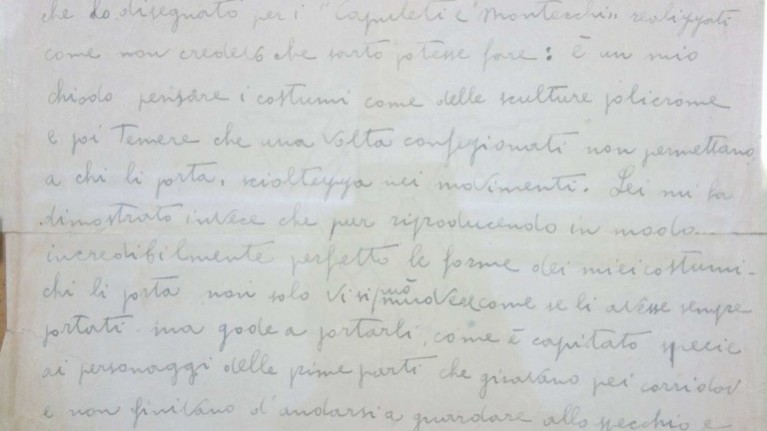 che ho disegnato per i "Capuleti e Montecchi" realizzati
come non credevo che sarto potesse fare: è un mio
chiodo pensare i costumi come delle sculture policrome
e poi temere che una volta confezionati non permettano
a chi li porta, scioltezza nei movimenti. Lei mi ha
dimostrato invece che pur riproducendo in modo
incredibilmente perfetto le forme dei miei costumi -
chi li porta non solo vi si può muovere come se li avesse sempre
portati ma gode a portarli, come è capitato specie
ai personaggi delle prime parti che giravano pei corridoi
e non finivano d'andarsi a guardare allo specchio e